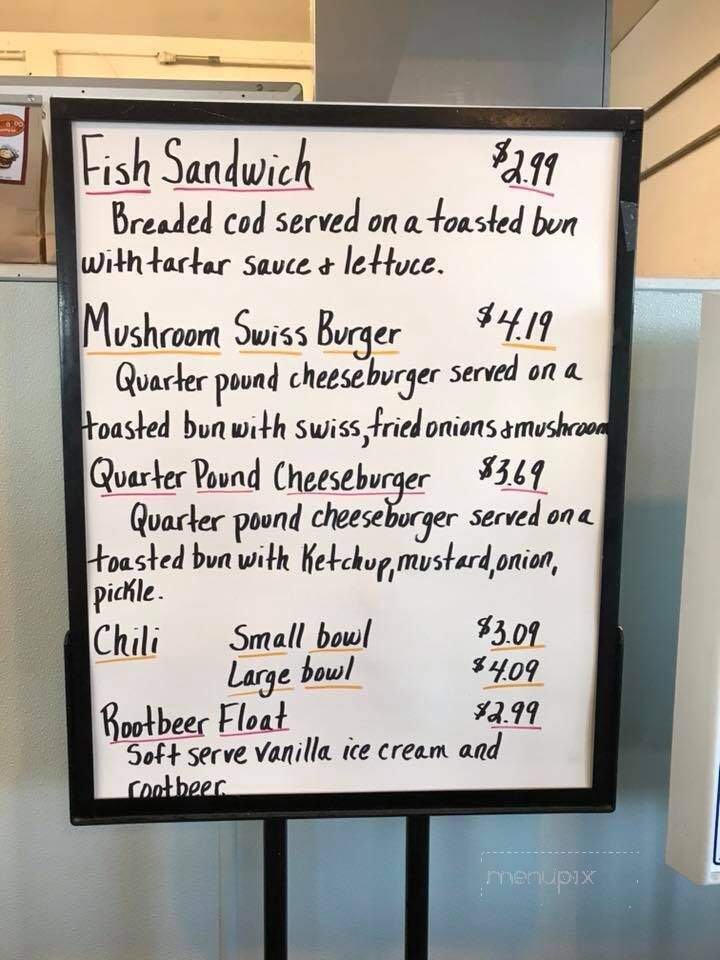 Fish Sandwich $2.99
Breaded cod served on a toasted bun
with tartar sauce & lettuce.
Mushroom Swiss Burger $4.19
Quarter pound cheeseburger served on a
toasted bun with swiss, fried onions & mushroom
Quarter Pound Cheeseburger $3.69
Quarter pound cheeseburger served on a
toasted bun with Ketchup, mustard, onion,
pickle.
Chili Small bowl $3.09
Large bowl $4.09
Rootbeer Float $2.99
Soft serve vanilla ice cream and
rootbeer.
menupix